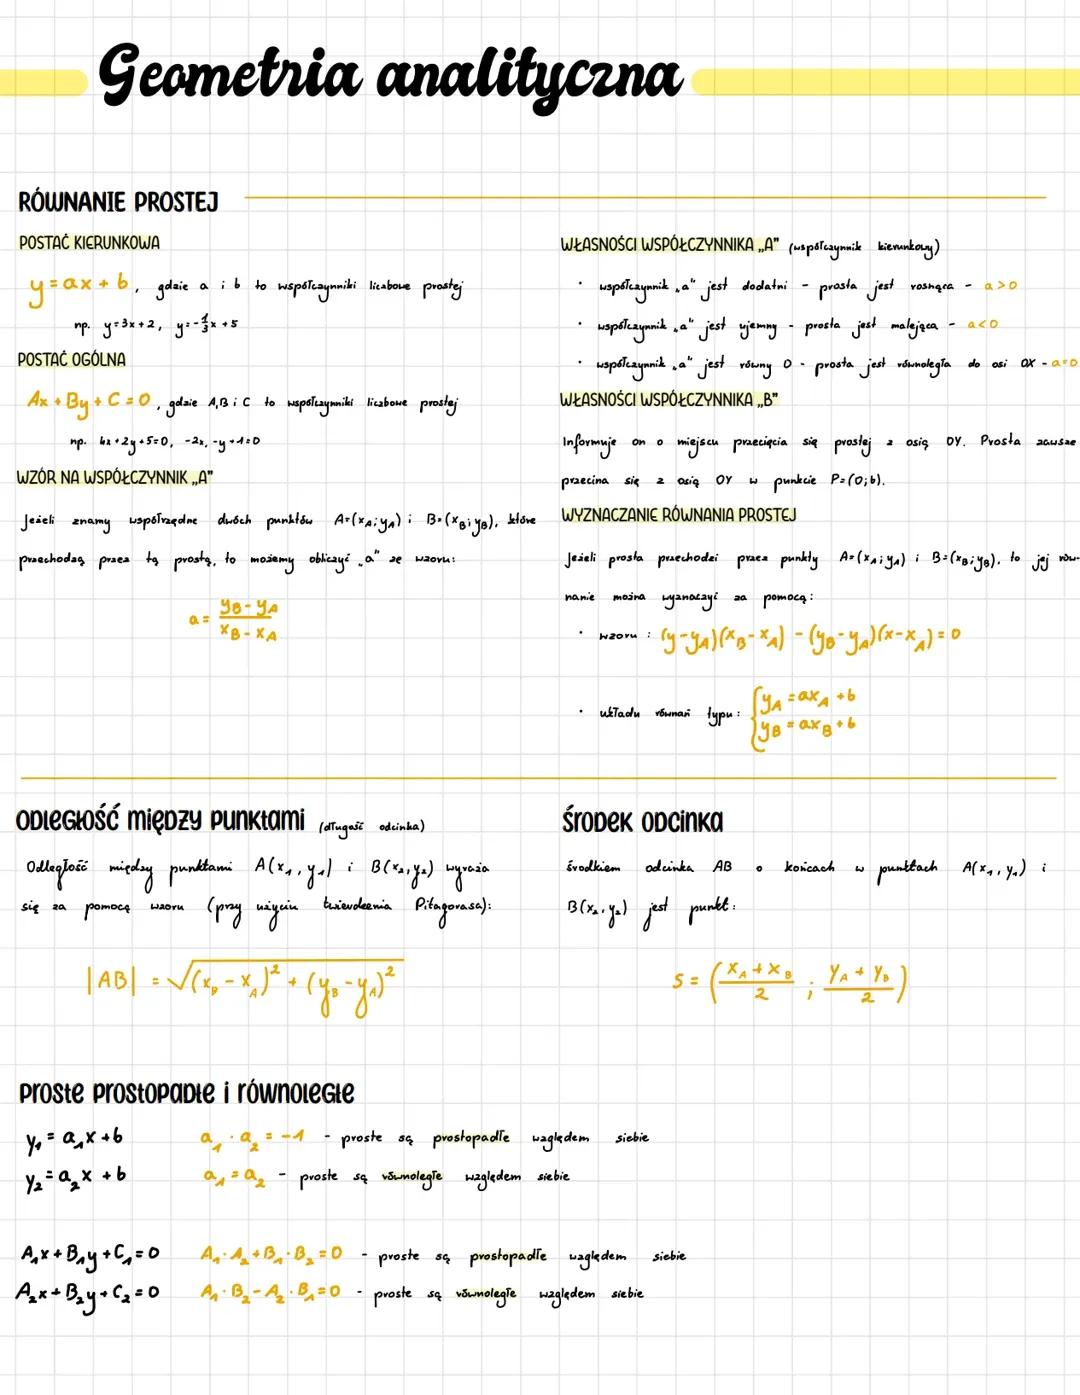 Geometria analityczna
RÓWNANIE PROSTEJ
POSTAĆ KIERUNKOWA
y = ax + b, gdzie a i b to współczynniki liczbowe prostej
np. y=3x+2, y=-1/3x+5
POSTAĆ OGÓLNA
Ax + By + C = 0, gdzie A,B i C to współczynniki liczbowe prostej
np. 4x+2y+5=0, -2x,-y+1=0
WZÓR NA WSPÓŁCZYNNIK „A"
Jeżeli znamy współrzędne dwóch punktów A=(x_A; y_A) i B=(x_B; y_B), które
przechodzą przez tą prostą, to możemy obliczyć „a" ze wzoru:
a = (y_B - y_A)/(x_B - x_A)
WŁASNOŚCI WSPÓŁCZYNNIKA „A" (współczynnik kierunkowy)
· współczynnik „a" jest dodatni - prosta jest rosnąca - a>0
· współczynnik „a" jest ujemny - prosta jest malejąca - a<0
· współczynnik „a" jest równy 0 - prosta jest równoległa do osi OX - a=0
WŁASNOŚCI WSPÓŁCZYNNIKA „B"
Informuje on o miejscu przecięcia się prostej z osią OY. Prosta zawsze
przecina się z osią OY w punkcie P=(0;b).
WYZNACZANIE RÓWNANIA PROSTEJ
Jeżeli prosta przechodzi przez punkty A=(x_A; y_A) i B=(x_B; y_B), to jej rów-
nanie można wyznaczyć za pomocą:
· wzoru : (y-y_A)(x_B-x_A) - (y_B-y_A)(x-x_A) = 0
· układu równań typu: { y_A = ax_A + b
y_B = ax_B + b
ODLEGŁOŚĆ MIĘDZY PUNKTAMI (długość odcinka)
Odległość między punktami A(x₁, y₁) i B(x₂, y₂) wyraża
się za pomocą wzoru (przy użyciu twierdzenia Pitagorasa):
|AB| = √((x_B - x_A)² + (y_B - y_A)²)
ŚRODEK ODCINKA
Środkiem odcinka AB o końcach w punktach A(x₁, y₁) i
B(x₂, y₂) jest punkt:
S = ((x_A + x_B)/2 ; (y_A + y_B)/2)
PROSTE PROSTOPADŁE I RÓWNOLEGŁE
y₁ = a₁x + b a₁ · a₂ = -1 - proste są prostopadłe względem siebie
y₂ = a₂x + b a₁ = a₂ - proste są równoległe względem siebie
A₁x + B₁y + C₁ = 0 A₁·A₂ + B₁·B₂ = 0 - proste są prostopadłe względem siebie
A₂x + B₂y + C₂ = 0 A₁·B₂ - A₂·B₁ = 0 - proste są równoległe względem siebie